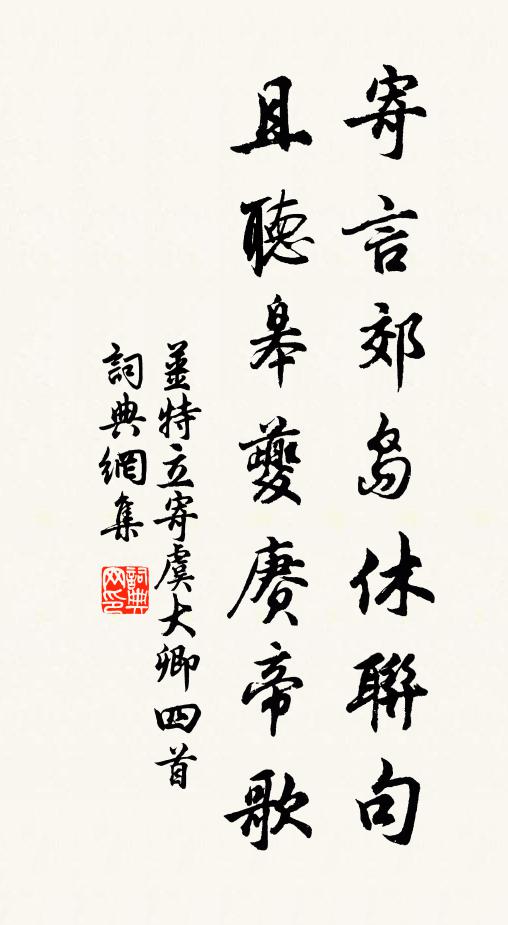 寄言郊島休聯句
且聽皋夔賡帝歌
姜特立寄虞大卿四首
詞典網集
詞典
網印